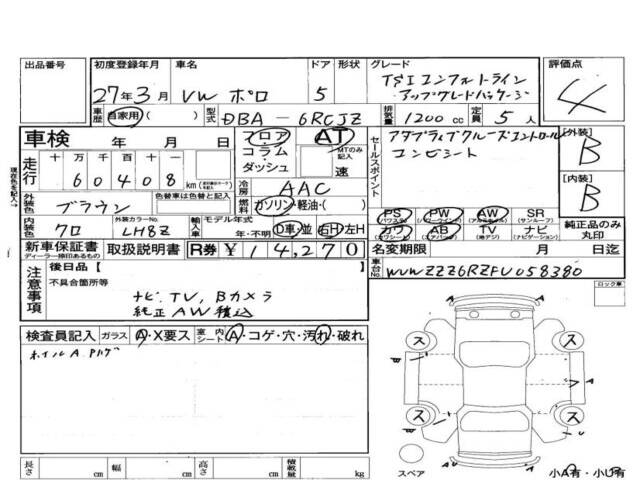 出品番号 初度登録年月 車名 ドア 形状 グレード 評価点
27年3月 VW ポロ 5 TSIコンフォートライン
アップグレードパッケージ 4
車歴 自家用 ( ) 型式 DBA-6RCJZ 排気量 1200 cc 定員 5 人
車検 年 月 日 フロア AT
コラム・ MTのみ記入
ダッシュ 速
セールスポイント アダプティブクルーズコントロール
コンビシート
[外装] B
[内装] B
現在色を記入→
走行 十 万 千 百 十 一
60408 km
冷房 AAC
外装色 ブラウン 色替車は色替と記入
燃料 ガソリン・軽油・( )
内装色 クロ 外装カラーNo. LH8Z 輸入車 モデル年式 年・不明 D車 並 右H 左H
PS (パワステ) PW (パワーウインド) AW (アルミホイル) SR (サンルーフ)
カワ (カワシート) AB (エアバッグ) TV (地デジ) ナビ (ナビゲーション)
純正品のみ
丸印
新車保証書 取扱説明書 R券 ¥14,270
ディーラー捺印あるもの
名変期限 月 日迄
車台No. WVWZZZ6RZFU058380
注意事項 後日品 [ ]
不具合箇所等
ナビ、TV、Bカメラ
純正AW積込
ロック車
検査員記入 ガラス A・X要ス 室内シート A・コゲ・穴・汚れ・破れ
ホイルA
ス ス
ス ス
A
A
スペア 小A有・小U有
長さ cm 幅 cm 高さ cm 積載量 kg